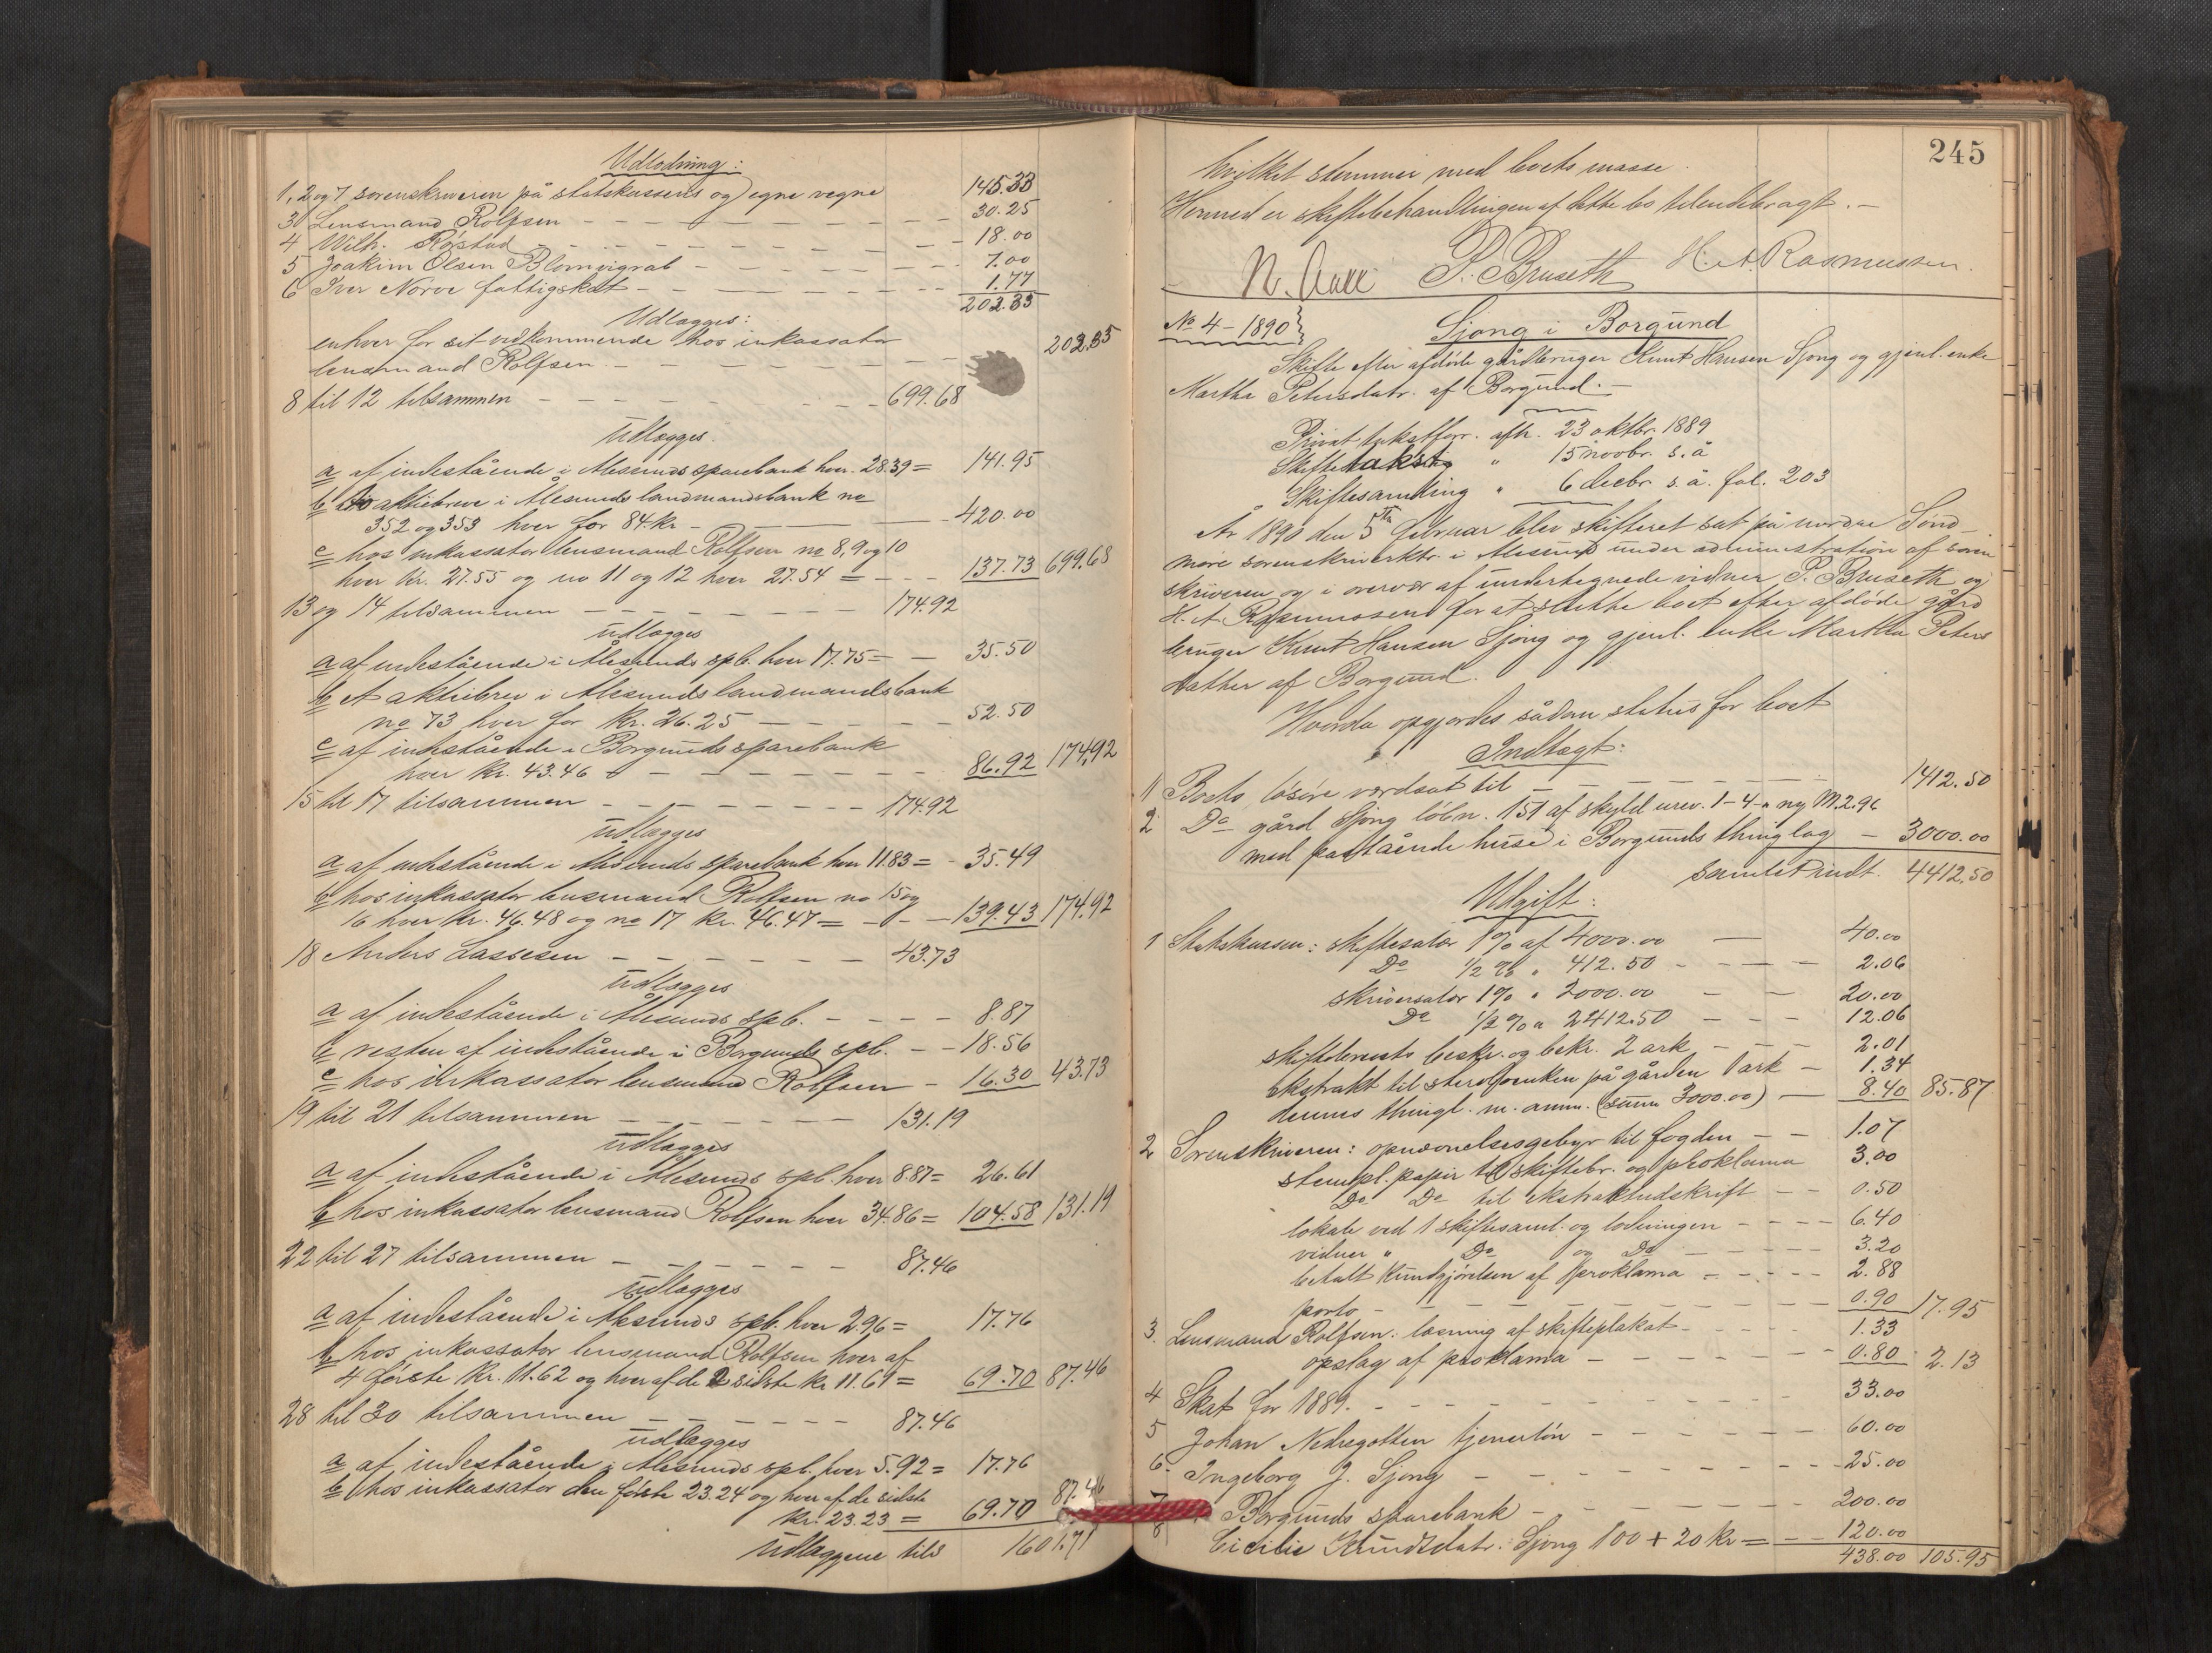 Udlodning:
1, 2 og 7 sorenskriveren på statskassens og egne vegne 145.33
3 Lensmand Rolfsen 30.25
4 Wilh. Røstad 18.00
5 Joakim Olsen Blomvigrab 7.00
6 Iver Norve fattigskat 1.77
202.35
Udlægges:
enhver for sit vedkommende hos inkassator
lensmand Rolfsen 202.35
8 til 12 tilsammen 699.68
Udlægges.
a af indestående i Ålesunds sparebank hver 28.39 = 141.95
b to aktiebreve i Ålesunds landmandsbank no
352 og 353 hver for 84 kr 420.00
c hos inkassator lensmand Rolfsen no 8, 9 og 10
hver kr. 27.55 og no 11 og 12 hver 27.54 = 137.73 699.68
13 og 14 tilsammen 174.92
Udlægges
a af indestående i Ålesunds spb. hver 17.75 = 35.50
b et aktiebrev i Ålesunds landmandsbank
no 73 hver for kr. 26.25 52.50
c af indestående i Borgunds sparebank
hver kr. 43.46 86.92 174.92
15 til 17 tilsammen 174.92
Udlægges
a af indestående i Ålesunds sparebank hver 11.83 = 35.49
b hos inkassator lensmand Rolfsen no 15 og
16 hver kr. 46.48 og no 17 kr. 46.47 = 139.43 174.92
18 Anders Lassesen 43.73
udlægges
a af indestående i Ålesunds spb. 8.87
b resten af indestående i Borgunds spb. 18.56
c hos inkassator lensmand Rolfsen 16.30 43.73
19 til 21 tilsammen 131.19
udlægges
a af indestående i Ålesunds spb. hver 8.87 = 26.61
b hos inkassator lensmand Rolfsen hver 34.86 = 104.58 131.19
22 til 27 tilsammen 87.46
udlægges
a af indestående i Ålesunds spb. hver 2.96 = 17.76
b hos inkassator lensmand Rolfsen hver af
4 første kr. 11.62 og hver af de 2 sidste kr 11.61 = 69.70 87.46
28 til 30 tilsammen 87.46
udlægges
a af indestående i Ålesunds spb. hver 5.92 = 17.76
b hos inkassator den første 23.24 og hver af de sidste
kr. 23.23 = 69.70 87.46
Udlæggene tils 1601.71
245
hvilket stemmer med boets masse
Hermed er skiftebehandlingen af dette bo tilendebragt. –
N. Aall P. Bruseth H. A. Rasmussen.
No 4 – 1890
Sjong i Borgund
Skifte efter afdøde gårdbruger Knut Hansen Sjong og gjenl. enke
Martha Petersdatr. af Borgund. –
Privat takstforr. afh. 23 oktbr. 1889
Skiftetakst " 15 novbr. s. å
Skiftesamling " 6 decbr s. å. fol. 203
År 1890 den 5te februar blev skifteret sat på nordre Sønd-
møre sorenskriverktr. i Ålesund under administration af soren
skriveren og i overvær af undertegnede vidner P. Bruseth og
H. A. Rasmussen for at slutte boet efter afdøde gård
bruger Knut Hansen Sjong og gjenl. enke Martha Peters
datter af Borgund.
Hvorda opgjordes sådan status for boet
Indtægt:
1 Boets løsøre værdsat til 1412.50
2 Do gård Sjong løbn. 151 af skyld urev. 1 – 4 – " ny M. 2.96
med påstående huse i Borgunds thinglag 3000.00
samlet indt. 4412.50
Udgift:
1 Statskassen: skiftesalær 1% af 4000.00 40.00
Do 1/2 % " 412.50 2.06
skriversalær 1% " 2000.00 20.00
Do 1/2 % " 2412.50 12.06
skiftebrevets beskr. og bekr. 2 ark 2.01
ekstrakt til på gården 1 ark 1.34
dennes thingl. m. anm. (sum 3000.00) 8.40 85.87
2 Sorenskriveren: opnævnelsesgebyr til fogden 1.07
stempl. papir til skiftebr. og proklama 3.00
Do Do til ekstraktudskrift 0.50
lokale ved 1 skiftesaml. og lodningen 6.40
vidner " Do og Do 3.20
betalt kundgjørelsen af proklama 2.88
porto 0.90 17.95
3. Lensmand Rolfsen: læsning af skifteplakat 1.33
opslag af proklama 0.80 2.13
4 Skat for 1889. 33.00
5 Johan Nedregotten tjenerløn 60.00
6 Ingeborg J. Sjong 25.00
7 Borgunds sparebank 200.00
8 Cicilie Knudtsdatr. Sjong 100 + 20 kr = 120.00
438.00 105.95